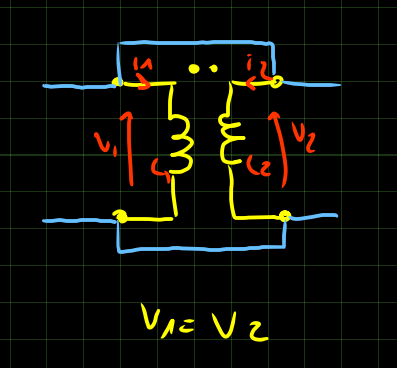 i1 i2
V1 L1 L2 V2
V1 = V2